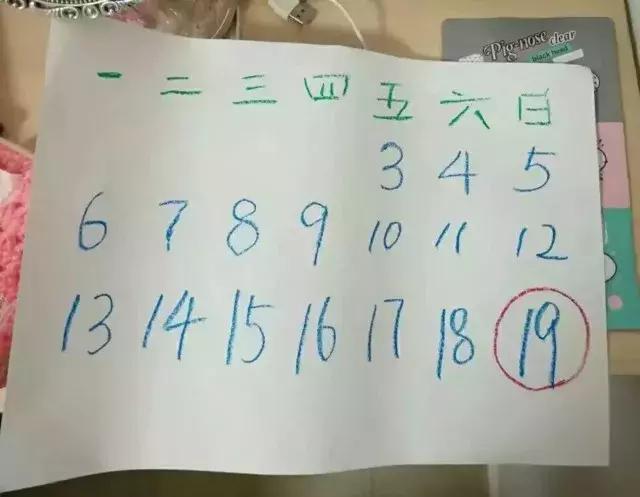 Pig-nose clear
black head
一 二 三 四 五 六 日
3 4 5
6 7 8 9 10 11 12
13 14 15 16 17 18 19